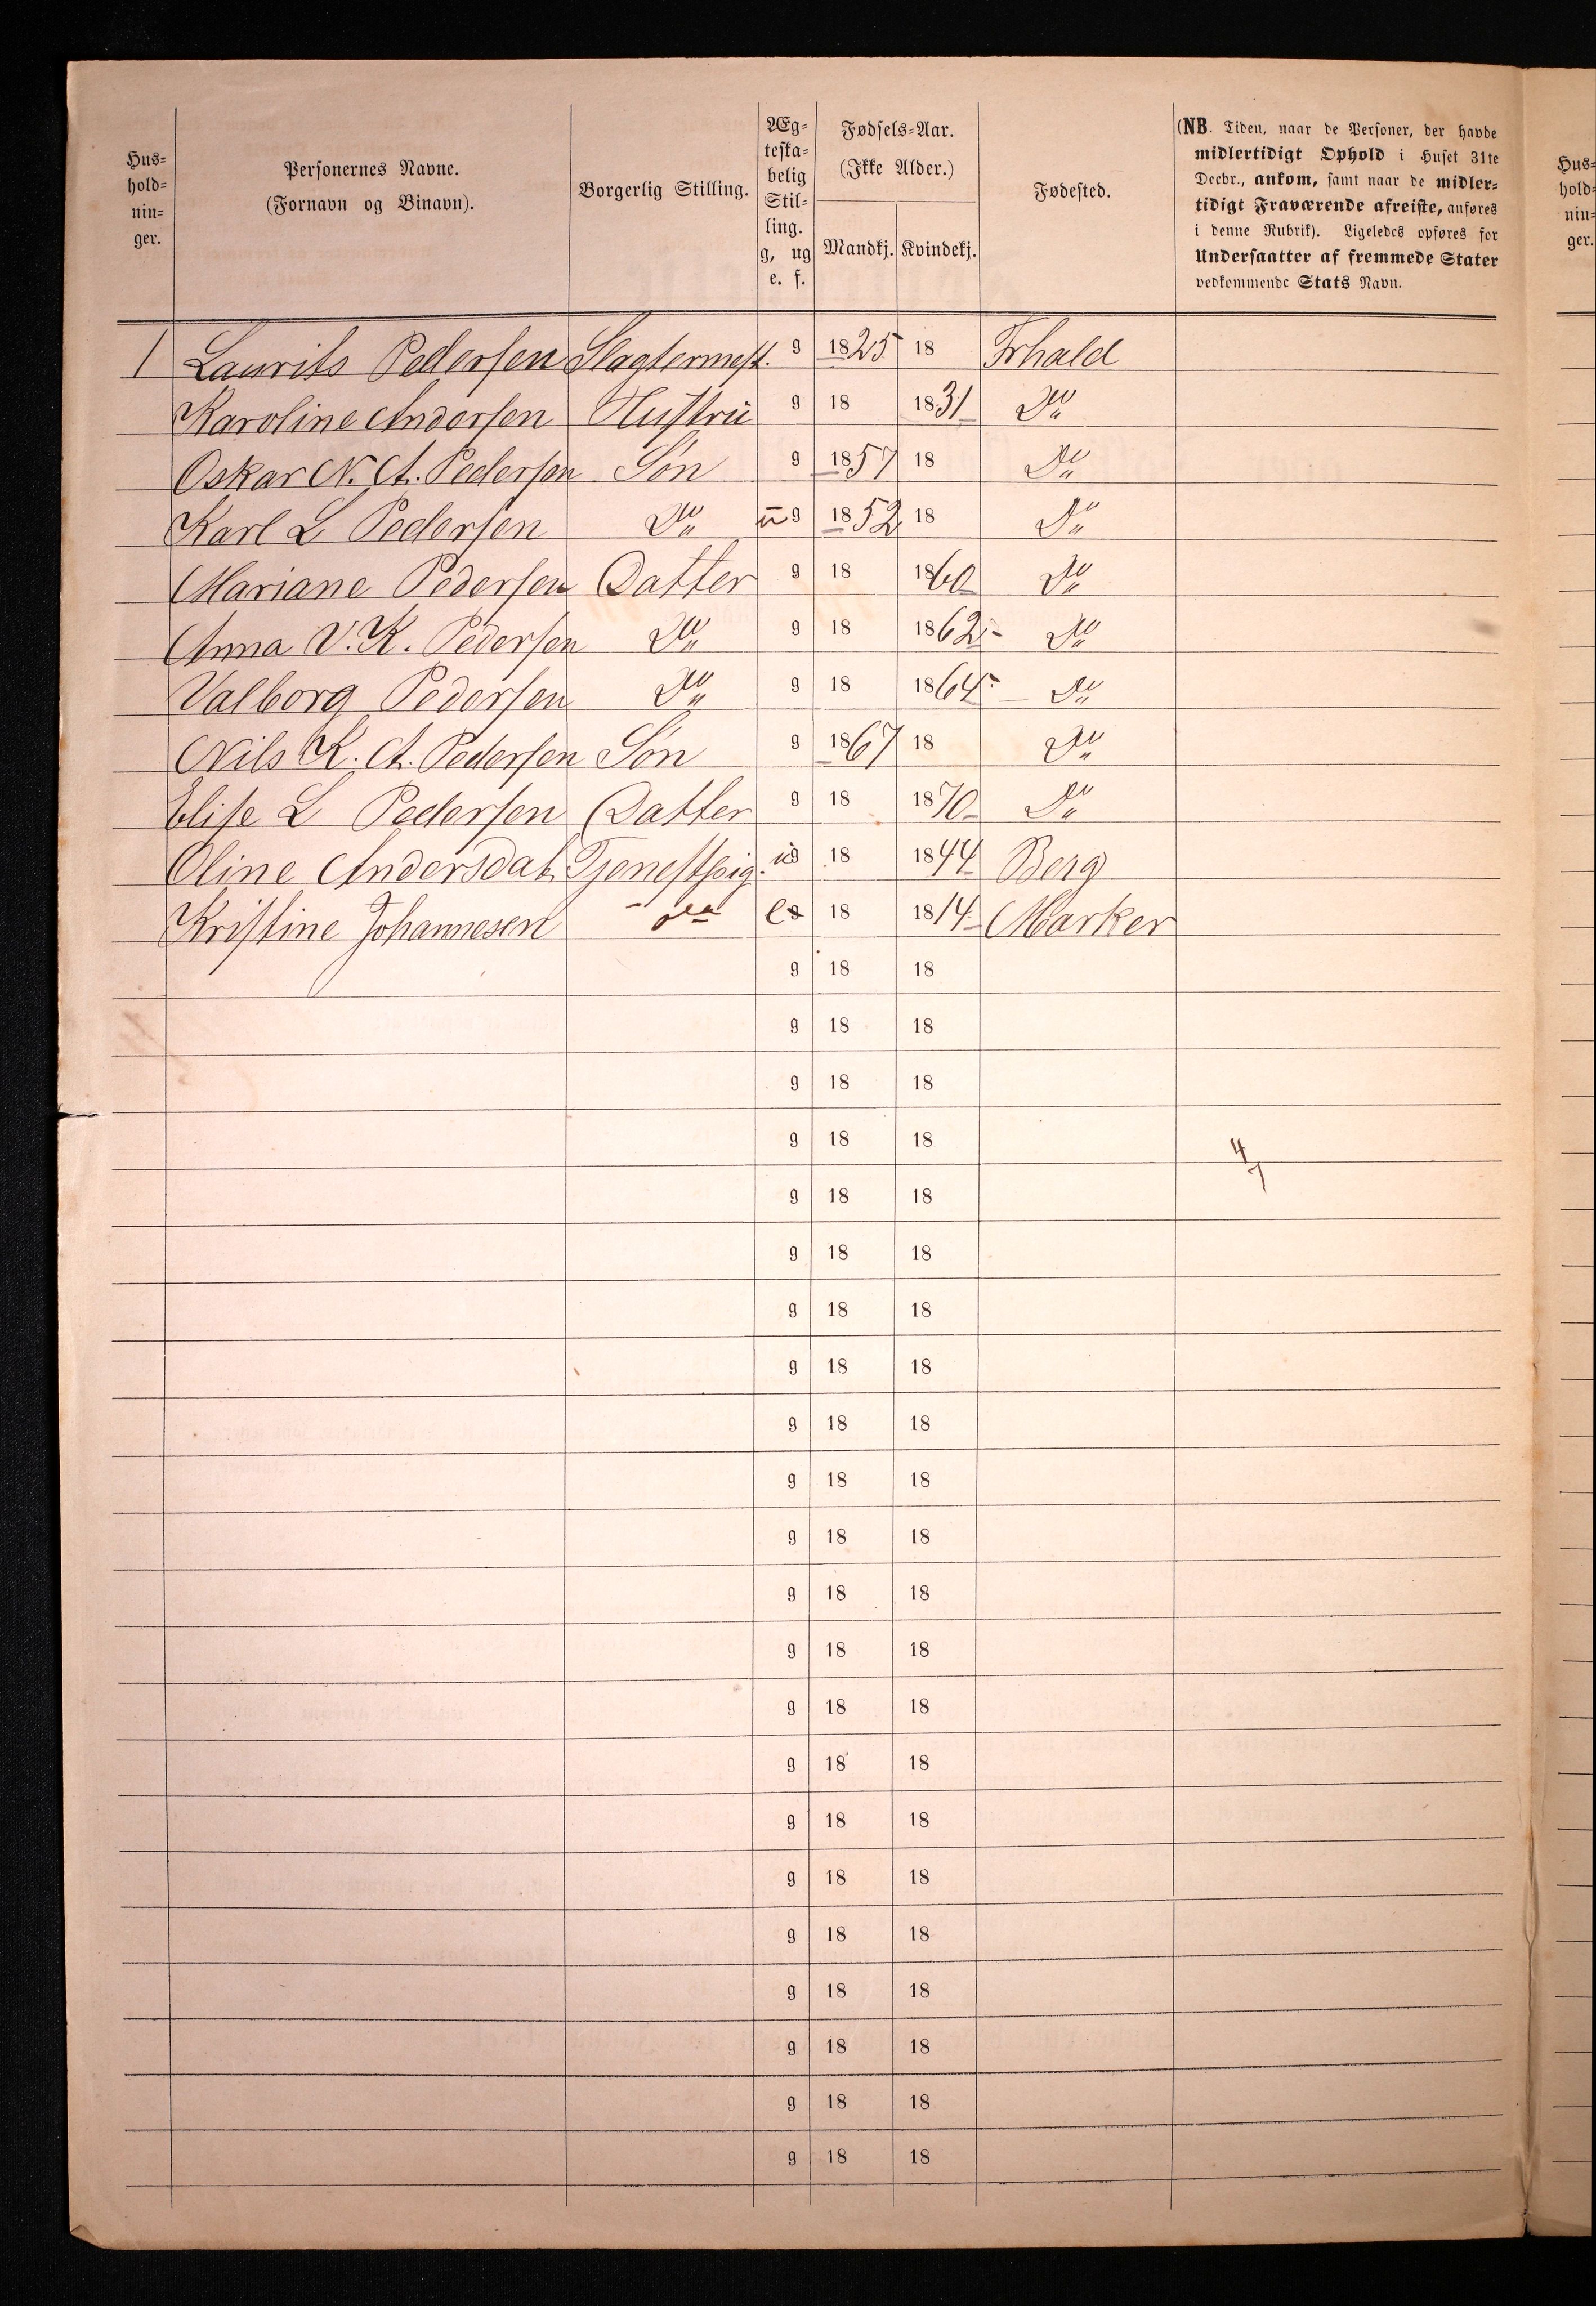 Hus=
hold=
nin=
ger.
Personernes Navne.
(Fornavn og Binavn).
Borgerlig Stilling.
Æg=
teska=
belig
Stil=
ling.
g, ug
e. f.
Fødsels=Aar.
(Ikke Alder.)
Mandkj. Kvindekj.
Fødested.
(NB. Tiden, naar de Personer, der havde
midlertidigt Ophold i Huset 31te
Decbr., ankom, samt naar de midler=
tidigt Fraværende afreiste, anføres
i denne Rubrik). Ligeledes opføres for
Undersaatter af fremmede Stater
vedkommende Stats Navn.
Hus=
hold=
nin=
ger.
1 Laurits Pedersen Slagtermest. g 1825 18 Frhald
Karoline Andersen Hustru g 18 1831 Do
Oskar N. A. Pedersen Søn g 1857 18 Do
Karl L Pedersen Do ug 1852 18 Do
Mariane Pedersen Datter g 18 1860 Do
Anna V. K. Pedersen Do g 18 1862 Do
Valborg Pedersen Do g 18 1864 Do
Nils K. A. Pedersen Søn g 1867 18 Do
Elise L Pedersen Datter g 18 1870 Do
Oline Andersdat Tjenestpig. ug 18 1844 Berg
Kristine Johannesen e 18 1814 Marker
g 18 18
g 18 18
g 18 18
g 18 18
4
g 18 18
g 18 18
g 18 18
g 18 18
g 18 18
g 18 18
g 18 18
g 18 18
g 18 18
g 18 18
g 18 18
g 18 18
g 18 18
g 18 18
g 18 18
g 18 18
g 18 18
g 18 18